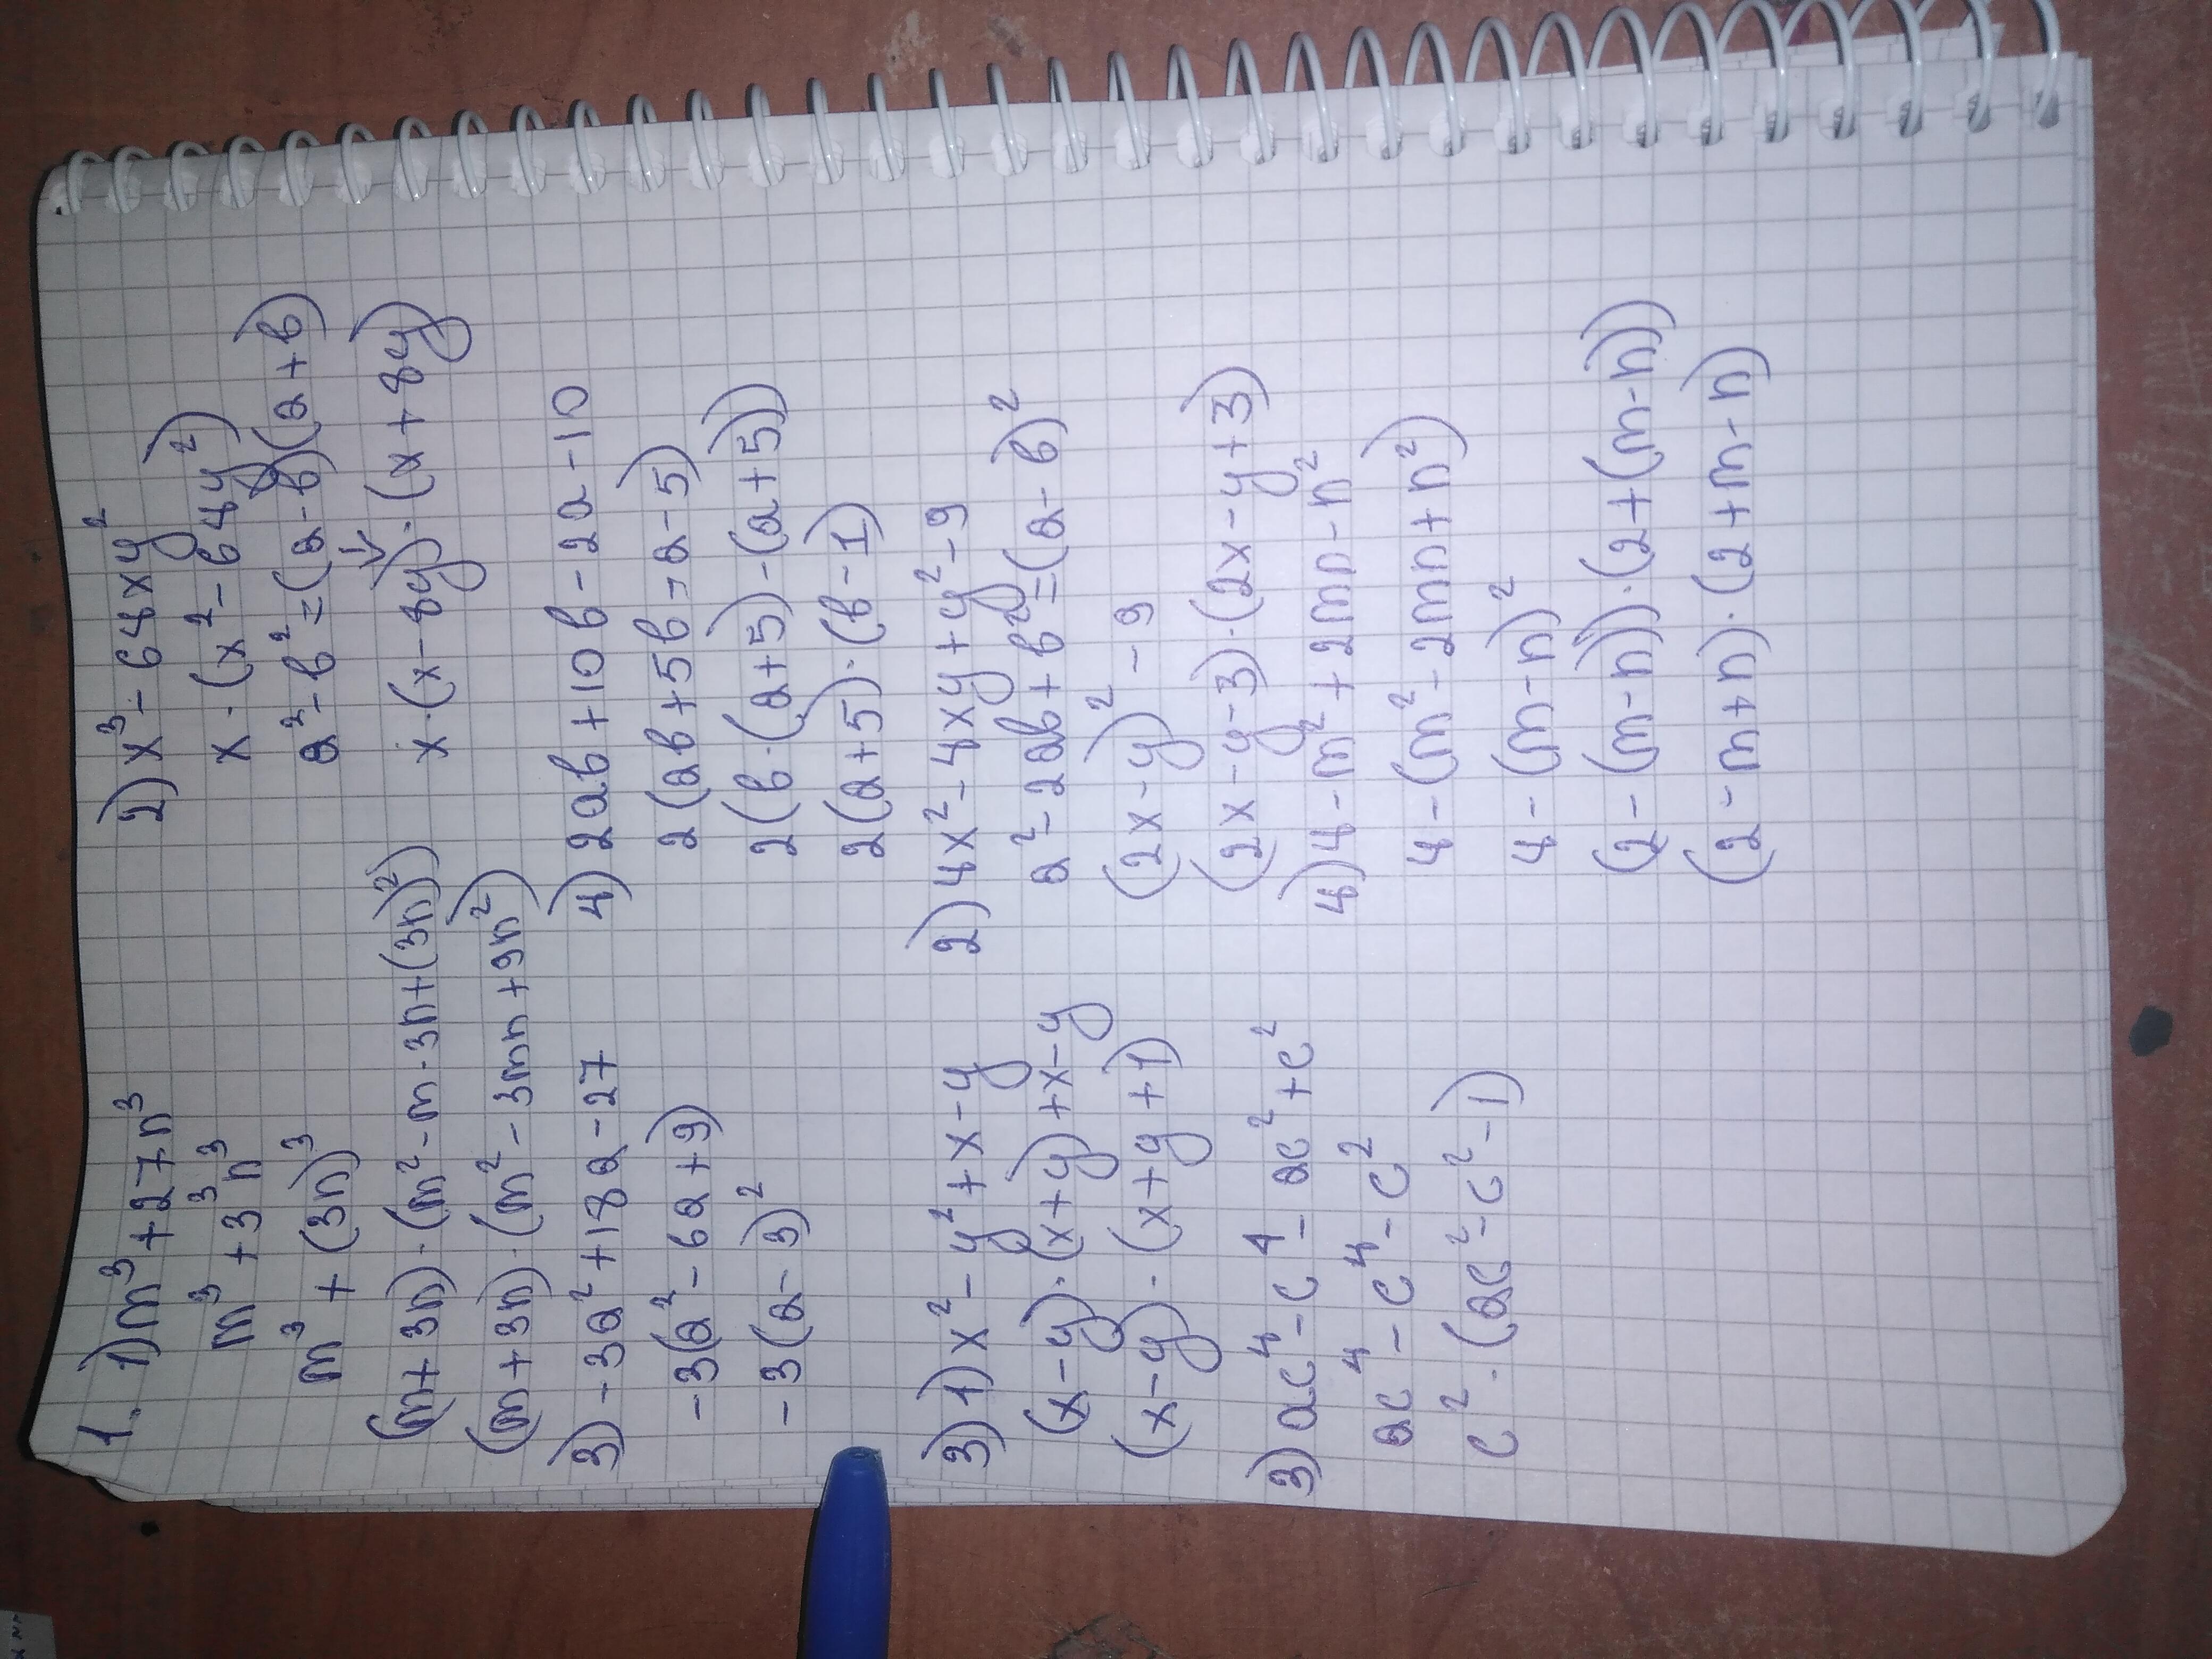 1. 1) m³ + 27n³
m³ + 3³n³
m³ + (3n)³
(m + 3n) · (m² - m · 3n + (3n)²)
(m + 3n) · (m² - 3mn + 9n²)
2) x³ - 64xy²
x · (x² - 64y²)
a² - b² = (a - b)(a + b)
x · (x - 8y) · (x + 8y)
3) -3a² + 18a - 27
-3(a² - 6a + 9)
-3(a - 3)²
4) 2ab + 10b - 2a - 10
2(ab + 5b - a - 5)
2(b · (a + 5) - (a + 5))
2(a + 5) · (b - 1)
3) 1) x² - y² + x - y
(x - y) · (x + y) + x - y
(x - y) · (x + y + 1)
2) 4x² - 4xy + y² - 9
a² - 2ab + b² = (a - b)²
(2x - y)² - 9
(2x - y - 3) · (2x - y + 3)
3) ac⁴ - c⁴ - ac² + c²
ac⁴ - c⁴ - c²
c² · (ac² - c² - 1)
4) 4 - m² + 2mn - n²
4 - (m² - 2mn + n²)
4 - (m - n)²
(2 - (m - n)) · (2 + (m - n))
(2 - m + n) · (2 + m - n)